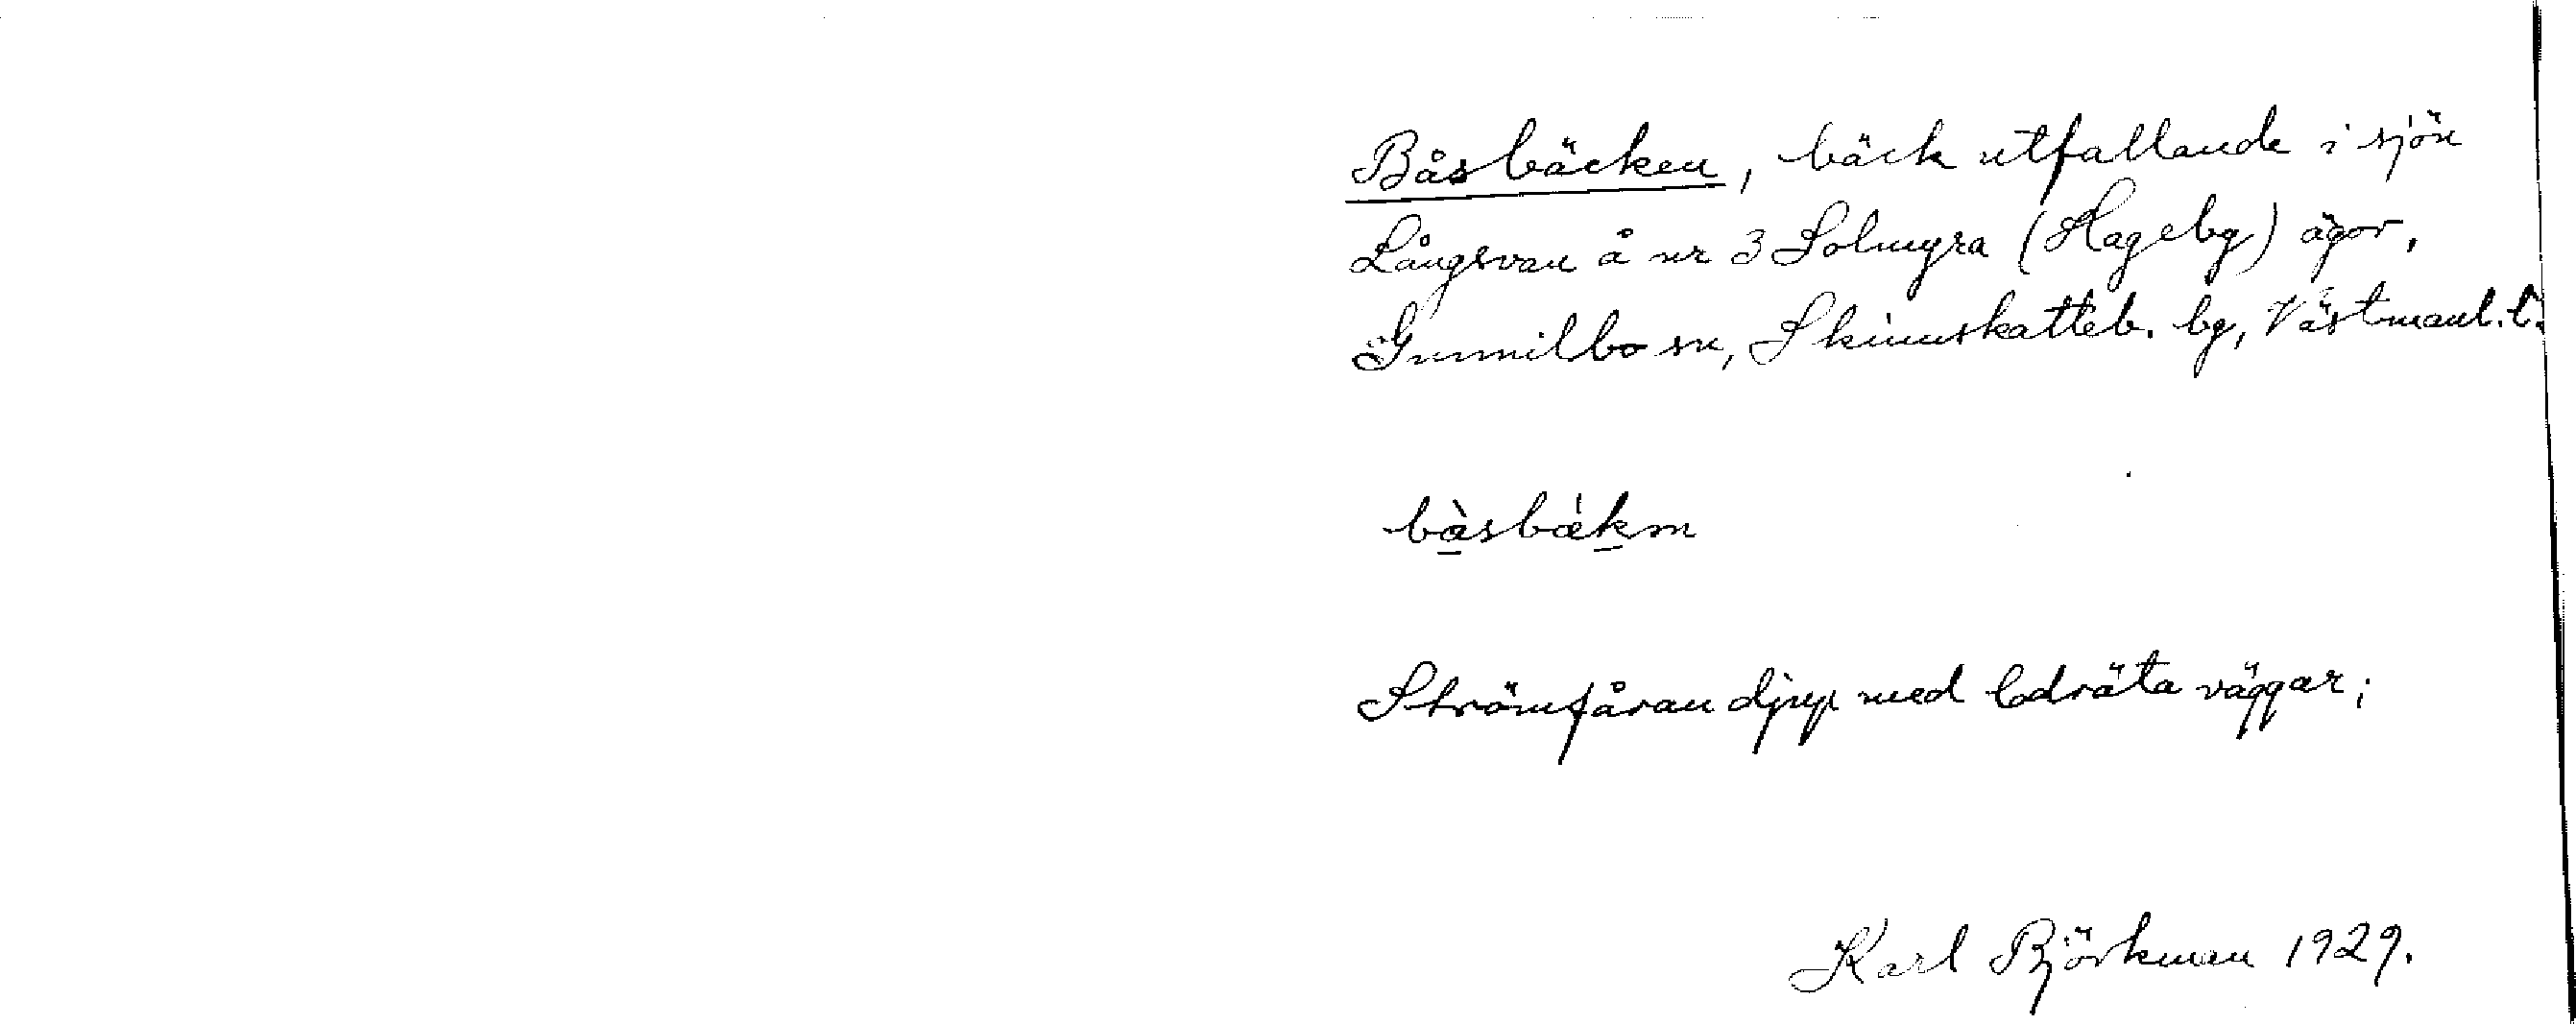 Båsbäcken, bäck utfallande i sjön
Långsvan å nr 3 Solmyra (Hagebg) ägor,
Gunnilbo sn, Skinnskatteb. bg, Västmanl. l.
bàsbǽkm
Strömfåran djup med lodräta väggar;
Karl Björkman 1929.